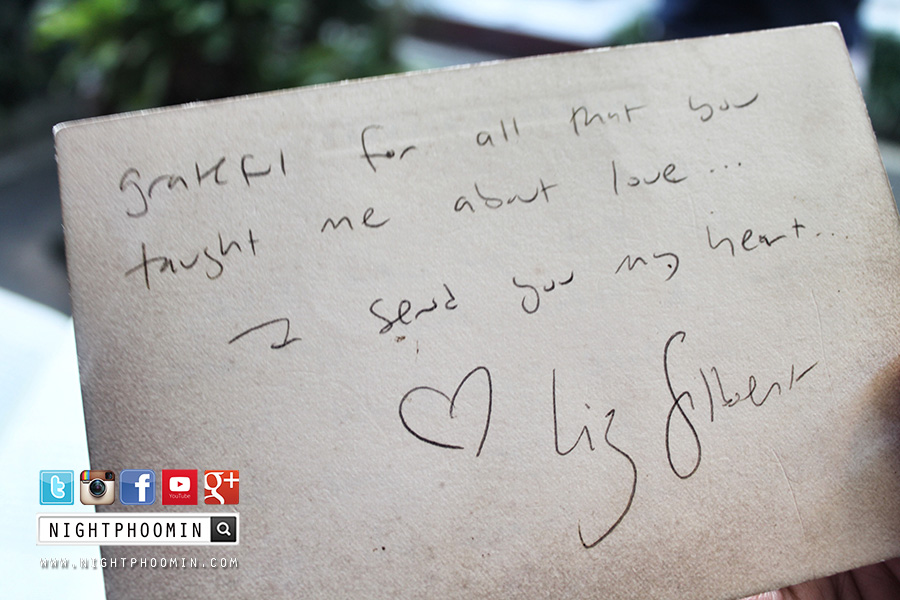 grateful for all that you
taught me about love...
I send you my heart...
♡ Liz Gilbert
YouTube
NIGHTPHOOMIN
WWW.NIGHTPHOOMIN.COM